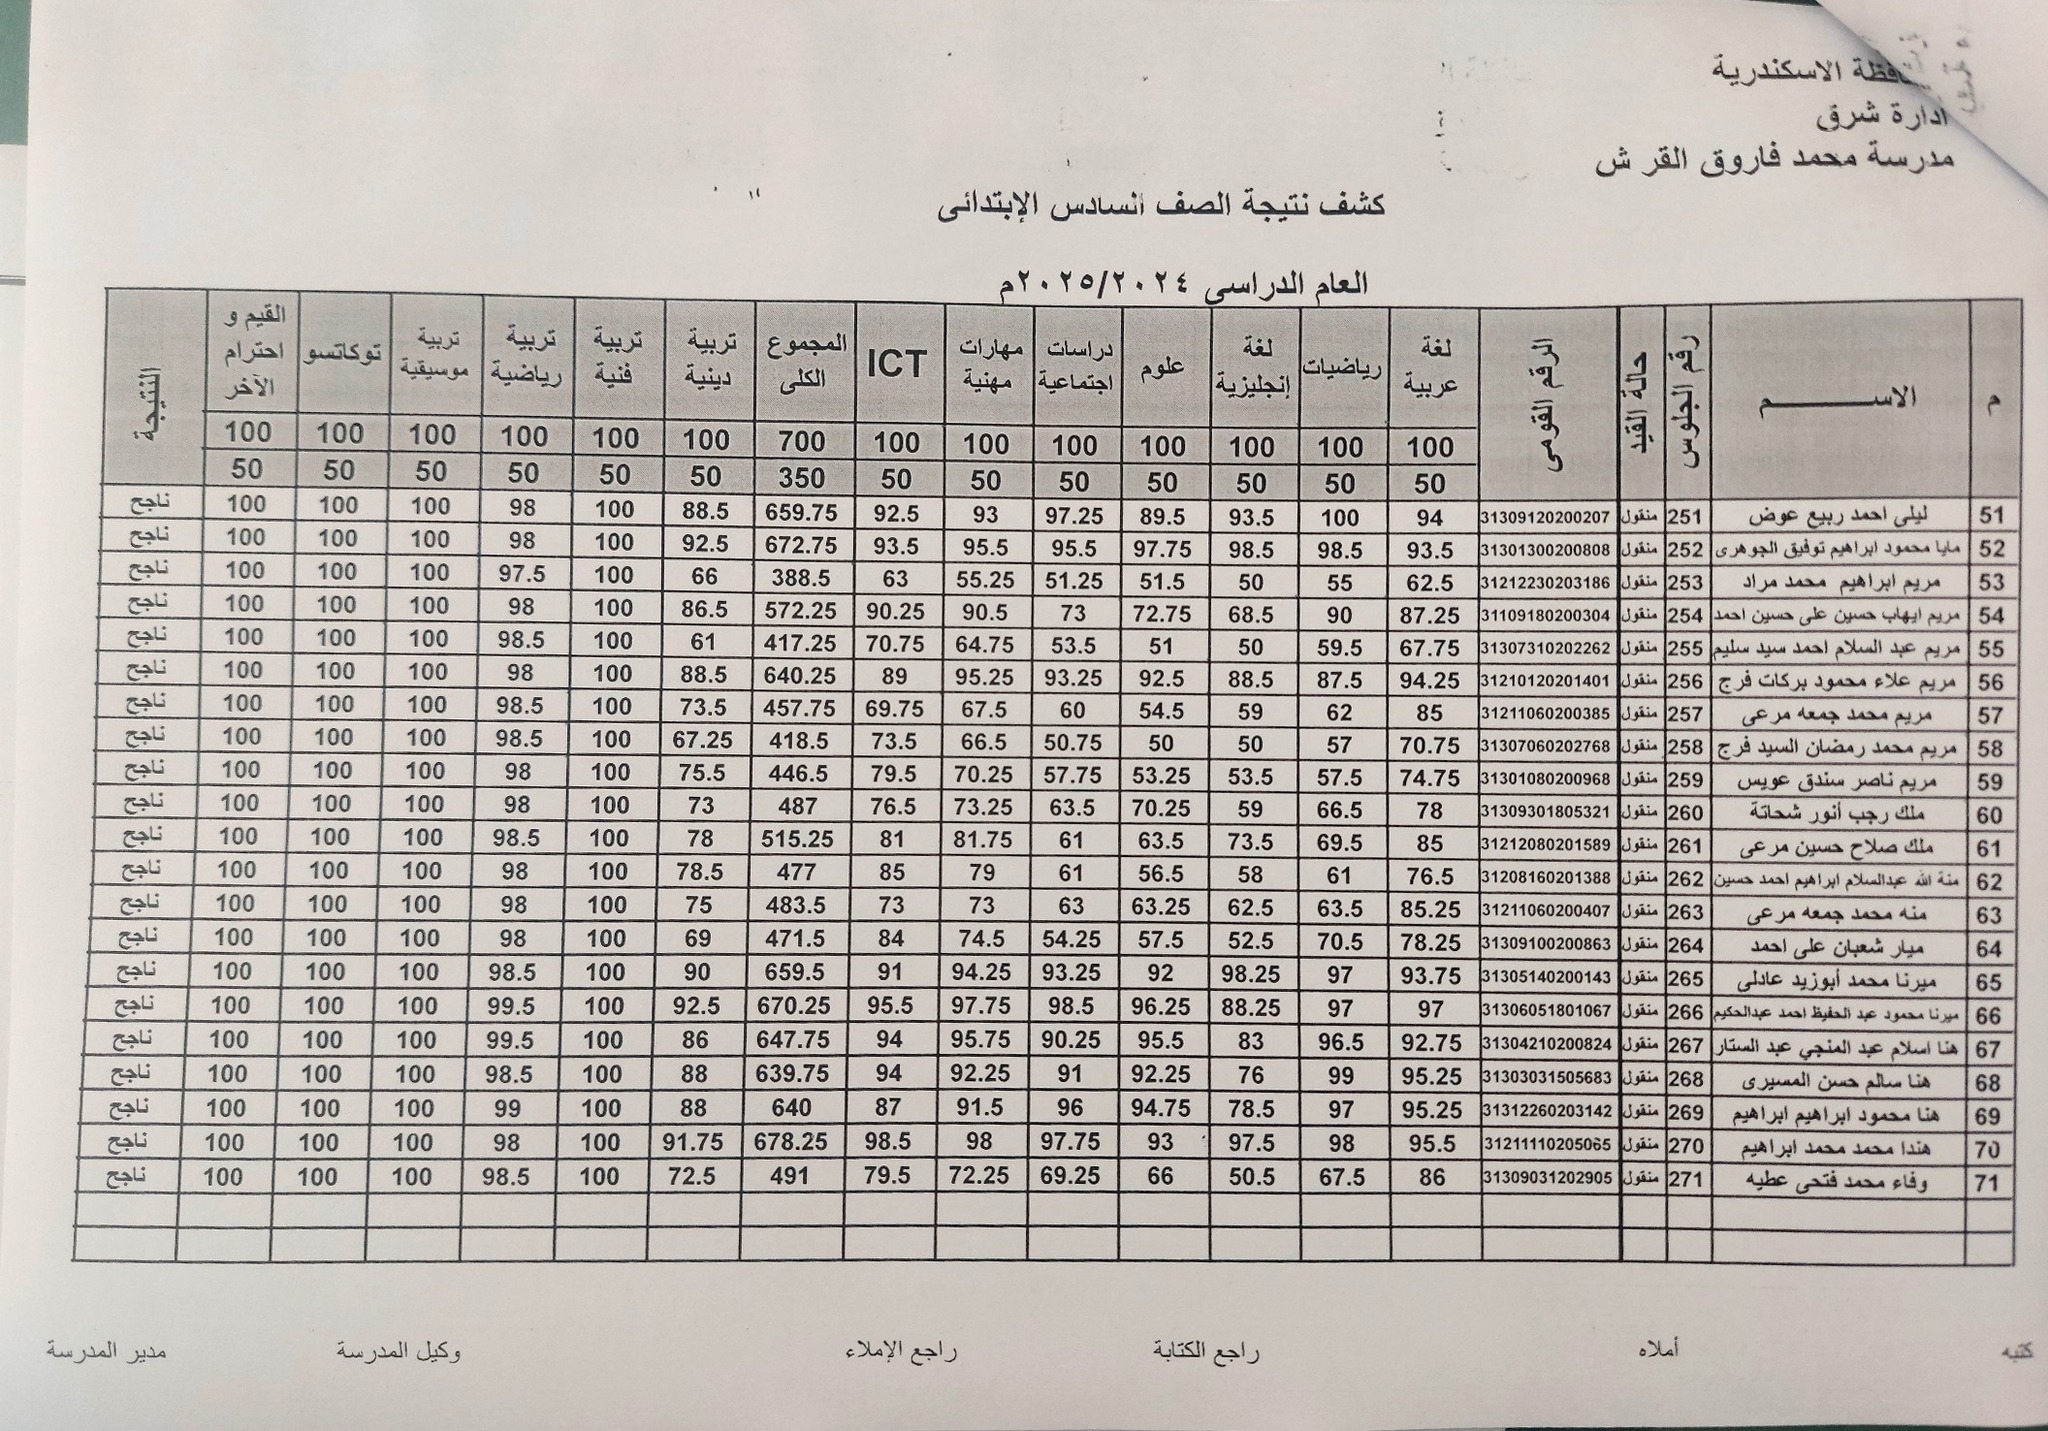 الاسكندرية
ادارة شرق
مدرسة محمد فاروق القر ش
كشف نتيجة الصف السادس الإبتدائى
العام الدراسى ٢٠٢٥/٢٠٢٤م
م الاســـــــم رقم الجلوس حالة القيد الرقم القومى لغة عربية رياضيات لغة إنجليزية علوم دراسات اجتماعية مهارات مهنية ICT المجموع الكلى تربية دينية تربية فنية تربية رياضية تربية موسيقية توكاتسو القيم و احترام الآخر النتيجة
100 100 100 100 100 100 100 700 100 100 100 100 100 100
50 50 50 50 50 50 50 350 50 50 50 50 50 50
51 ليلى احمد ربيع عوض 251 منقول 31309120200207 94 100 93.5 89.5 97.25 93 92.5 659.75 88.5 100 98 100 100 100 ناجح
52 مايا محمود ابراهيم توفيق الجوهرى 252 منقول 31301300200808 93.5 98.5 98.5 97.75 95.5 95.5 93.5 672.75 92.5 100 98 100 100 100 ناجح
53 مريم ابراهيم محمد مراد 253 منقول 31212230203186 62.5 55 50 51.5 51.25 55.25 63 388.5 66 100 97.5 100 100 100 ناجح
54 مريم ايهاب حسين على حسين احمد 254 منقول 31109180200304 87.25 90 68.5 72.75 73 90.5 90.25 572.25 86.5 100 98 100 100 100 ناجح
55 مريم عبد السلام احمد سيد سليم 255 منقول 31307310202262 67.75 59.5 50 51 53.5 64.75 70.75 417.25 61 100 98.5 100 100 100 ناجح
56 مريم علاء محمود بركات فرج 256 منقول 31210120201401 94.25 87.5 88.5 92.5 93.25 95.25 89 640.25 88.5 100 98 100 100 100 ناجح
57 مريم محمد جمعه مرعى 257 منقول 31211060200385 85 62 59 54.5 60 67.5 69.75 457.75 73.5 100 98.5 100 100 100 ناجح
58 مريم محمد رمضان السيد فرج 258 منقول 31307060202768 70.75 57 50 50 50.75 66.5 73.5 418.5 67.25 100 98.5 100 100 100 ناجح
59 مريم ناصر سندق عويس 259 منقول 31301080200968 74.75 57.5 53.5 53.25 57.75 70.25 79.5 446.5 75.5 100 98 100 100 100 ناجح
60 ملك رجب أنور شحاتة 260 منقول 31309301805321 78 66.5 59 70.25 63.5 73.25 76.5 487 73 100 98 100 100 100 ناجح
61 ملك صلاح حسين مرعى 261 منقول 31212080201589 85 69.5 73.5 63.5 61 81.75 81 515.25 78 100 98.5 100 100 100 ناجح
62 منة الله عبدالسلام ابراهيم احمد حسين 262 منقول 31208160201388 76.5 61 58 56.5 61 79 85 477 78.5 100 98 100 100 100 ناجح
63 منه محمد جمعه مرعى 263 منقول 31211060200407 85.25 63.5 62.5 63.25 63 73 73 483.5 75 100 98 100 100 100 ناجح
64 ميار شعبان على احمد 264 منقول 31309100200863 78.25 70.5 52.5 57.5 54.25 74.5 84 471.5 69 100 98 100 100 100 ناجح
65 ميرنا محمد أبوزيد عادلى 265 منقول 31305140200143 93.75 97 98.25 92 93.25 94.25 91 659.5 90 100 98.5 100 100 100 ناجح
66 ميرنا محمود عبد الحفيظ احمد عبدالحكيم 266 منقول 31306051801067 97 97 88.25 96.25 98.5 97.75 95.5 670.25 92.5 100 99.5 100 100 100 ناجح
67 هنا اسلام عبد المنجي عبد الستار 267 منقول 31304210200824 92.75 96.5 83 95.5 90.25 95.75 94 647.75 86 100 99.5 100 100 100 ناجح
68 هنا سالم حسن المسيرى 268 منقول 31303031505683 95.25 99 76 92.25 91 92.25 94 639.75 88 100 98.5 100 100 100 ناجح
69 هنا محمود ابراهيم ابراهيم 269 منقول 31312260203142 95.25 97 78.5 94.75 96 91.5 87 640 88 100 99 100 100 100 ناجح
70 هندا محمد محمد ابراهيم 270 منقول 31211110205065 95.5 98 97.5 93 97.75 98 98.5 678.25 91.75 100 98 100 100 100 ناجح
71 وفاء محمد فتحى عطيه 271 منقول 31309031202905 86 67.5 50.5 66 69.25 72.25 79.5 491 72.5 100 98.5 100 100 100 ناجح
كتبه أملاه راجع الكتابة راجع الإملاء وكيل المدرسة مدير المدرسة